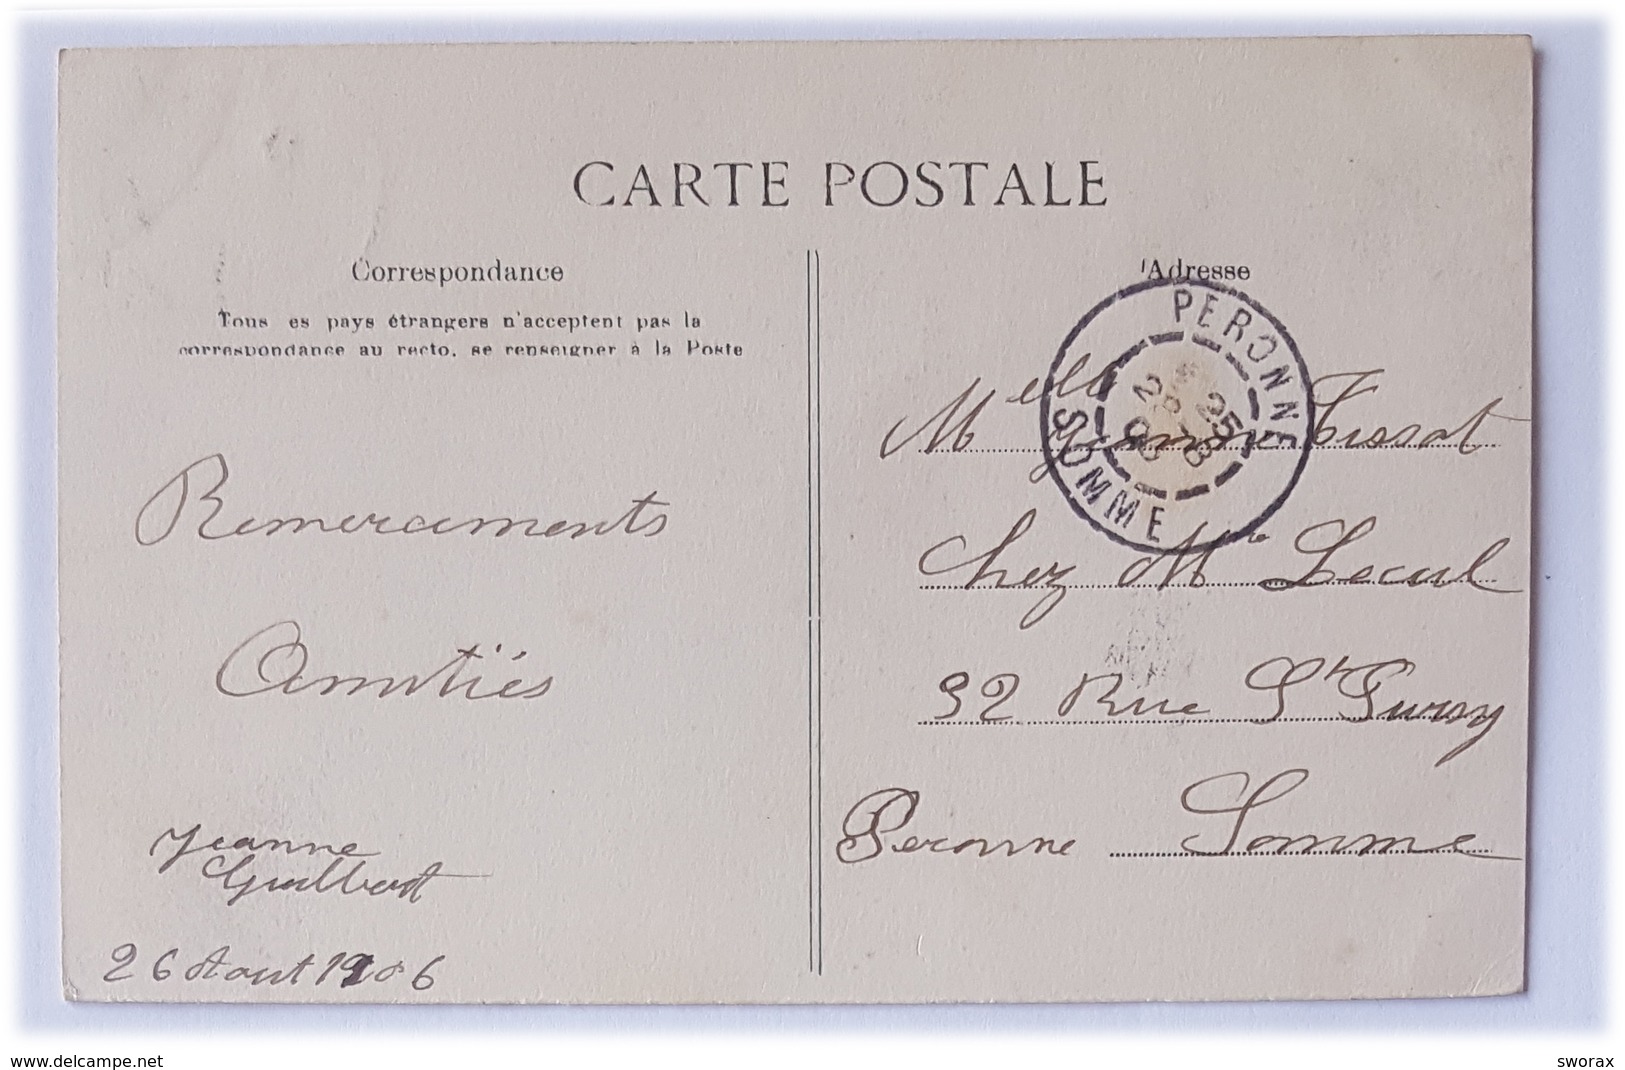 CARTE POSTALE
Correspondance
Tous es pays étrangers n'acceptent pas la
correspondance au recto, se renseigner à la Poste
Remerciements
Amitiés
Jeanne
Guilbert
26 Aout 1906
Adresse
PERONNE
25
SOMME
Melle Tissot
Chez Mme Lecul
92 Rue St Fursy
Peronne Somme
www.delcampe.net
sworax